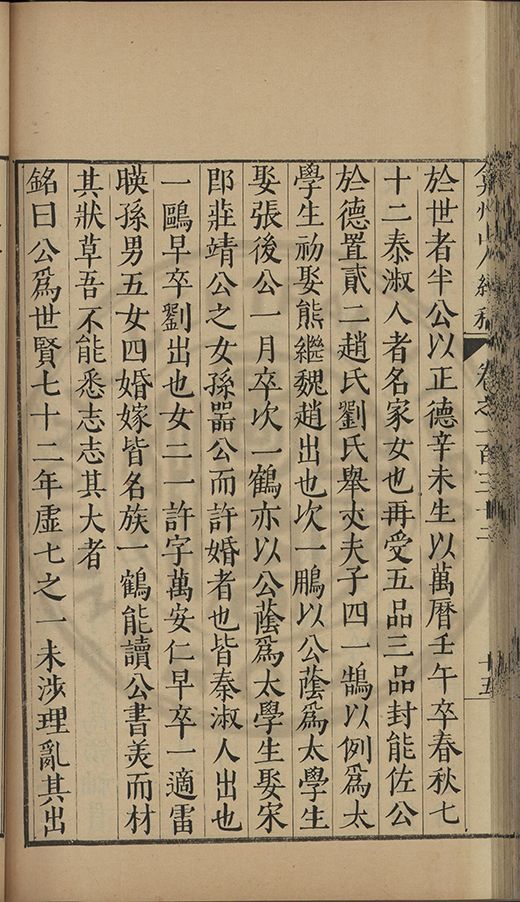 弇州山人續稿 卷之一百三十二 十五
於世者半公以正德辛未生以萬曆壬午卒春秋七
十二秦淑人者名家女也再受五品三品封能佐公
於德置貳二趙氏劉氏舉丈夫子四一鵠以例爲太
學生初娶熊繼魏趙出也次一鵬以公蔭爲太學生
娶張後公一月卒次一鶴亦以公蔭爲太學生娶宋
即莊靖公之女孫噐公而許婚者也皆秦淑人出也
一鷗早卒劉出也女二一許字萬安仁早卒一適雷
暎孫男五女四婚嫁皆名族一鶴能讀公書羙而材
其狀草吾不能悉志志其大者
銘曰公爲世賢七十二年虛七之一未涉理亂其出